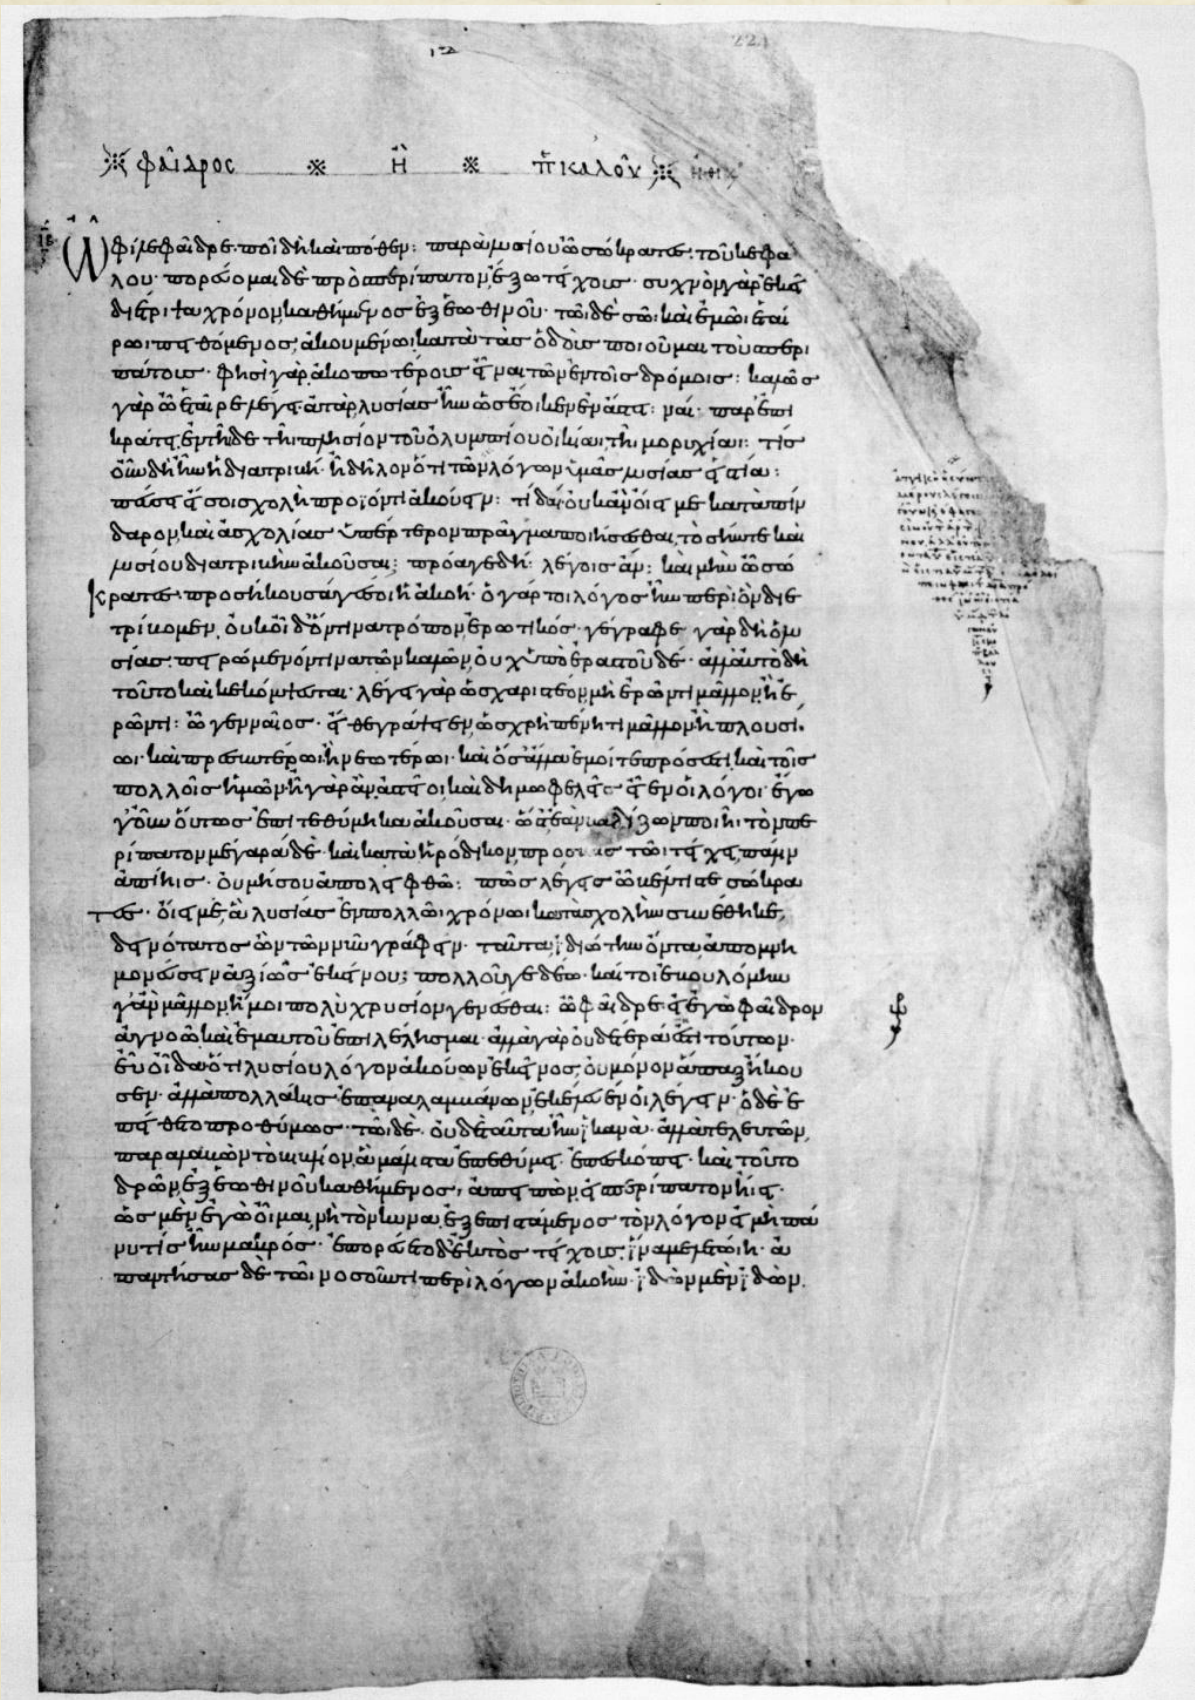 φαῖδρος ※ ἢ ※ π καλοῦ
Ὦ φίλε φαῖδρε· ποῖ δὴ καὶ πόθεν: παρὰ λυσίου ὦ σώκρατες· τοῦ κεφά
λου· πορεύομαι δὲ πρὸς περίπατον, ἔξω τείχους· συχνὸν γὰρ ἐκεῖ
διέτριψα χρόνον, καθήμενος ἐξ ἑωθινοῦ· τῶι δὲ σῶι καὶ ἐμῶι ἑταί
ρωι πειθόμενος, ἀκουμένωι κατὰ τὰς ὁδοὺς ποιοῦμαι τοὺς περι
πάτους· φησὶ γὰρ ἀκοπωτέρους εἶναι τῶν ἐν τοῖς δρόμοις: καλῶς
γὰρ ὦ ἑταῖρε λέγει· ἀτὰρ λυσίας ἦν ὡς ἔοικεν ἐν ἄστει: ναί· παρ' ἐπι
κράτει, ἐν τῆιδε τῆι πλησίον τοῦ ὀλυμπίου οἰκίαι, τῆι μορυχίαι: τίς
οὖν δὴ ἦν ἡ διατριβή· ἢ δῆλον ὅτι τῶν λόγων ὑμᾶς λυσίας εἱστία:
πεύσει εἴ σοι σχολὴ προϊόντι ἀκούειν: τί δαί· οὐκ ἂν οἴει με κατὰ πίν
δαρον, καὶ ἀσχολίας ὑπέρτερον πρᾶγμα ποιήσεσθαι, τὸ σήν τε καὶ
λυσίου διατριβὴν ἀκοῦσαι: πρόαγε δή: λέγοις ἄν: καὶ μὴν ὦ σώ
κρατες· προσήκουσα γέ σοι ἡ ἀκοή· ὁ γάρ τοι λόγος ἦν περὶ ὃν διε
τρίβομεν, οὐκ οἶδ' ὅντινα τρόπον, ἐρωτικός· γέγραφε γὰρ δὴ ὁ λυ
σίας, πειρώμενόν τινα τῶν καλῶν, οὐχ ὑπὸ ἐραστοῦ δέ· ἀλλ' αὐτὸ δὴ
τοῦτο καὶ κεκόμψευται· λέγει γὰρ ὡς χαριστέον, μὴ ἐρῶντι μᾶλλον, ἢ ἐ
ρῶντι: ὦ γενναῖος· εἴθε γράψειεν, ὡς χρὴ πένητι μᾶλλον, ἢ πλουσί
ωι· καὶ πρεσβυτέρωι, ἢ νεωτέρωι· καὶ ὅσα ἄλλα ἐμοί τε πρόσεστι, καὶ τοῖς
πολλοῖς ἡμῶν· ἦ γὰρ ἂν, ἀστεῖοι καὶ δημωφελεῖς εἶεν οἱ λόγοι· ἔγω
γ' οὖν οὕτως ἐπιτεθύμηκα ἀκοῦσαι· ὥστ' ἐὰν βαδίζων ποιῆι τὸν πε
ρίπατον μέγαράδε· καὶ κατὰ ἡρόδικον, προσβὰς τῶι τείχει, πάλιν
ἀπίηις· οὐ μή σου ἀπολειφθῶ: πῶς λέγεις ὦ βέλτιστε σώκρα
τες· οἴει με, ἃ λυσίας ἐν πολλῶι χρόνωι κατὰ σχολὴν συνέθηκε,
δεινότατος ὢν τῶν νῦν γράφειν· ταῦτα ἰδιώτην ὄντα ἀπομνη
μονεύσειν ἀξίως ἐκείνου; πολλοῦ γε δέω· καί τοι ἐβουλόμην
γ' ἂν μᾶλλον, ἤ μοι πολὺ χρυσίον γενέσθαι: ὦ φαῖδρε· εἰ ἐγὼ φαῖδρον
ἀγνοῶ, καὶ ἐμαυτοῦ ἐπιλέλησμαι· ἀλλὰ γὰρ οὐδέτερά ἐστι τούτων·
εὖ οἶδα ὅτι λυσίου λόγον ἀκούων ἐκεῖνος, οὐ μόνον ἅπαξ ἤκου
σεν· ἀλλὰ πολλάκις ἐπαναλαμβάνων, ἐκέλευέν οἱ λέγειν· ὁ δὲ ἐ
πείθετο προθύμως· τῶι δέ· οὐδὲ ταῦτα ἦν ἱκανά· ἀλλὰ τελευτῶν,
παραλαβὼν τὸ βιβλίον, ἃ μάλιστα ἐπεθύμει· ἐπεσκόπει· καὶ τοῦτο
δρῶν, ἐξ ἑωθινοῦ καθήμενος, ἀπειπὼν, εἰς περίπατον ἤιει·
ὡς μὲν ἐγὼ οἶμαι, νὴ τὸν κύνα, ἐξεπιστάμενος τὸν λόγον, εἰ μὴ πά
νυ τίς ἦν μακρός· ἐπορεύετο δ' ἐκτὸς τείχους, ἵνα μελετώιη· ἀ
παντήσας δὲ τῶι νοσοῦντι περὶ λόγων ἀκοὴν· ἰδὼν μὲν ἰδὼν